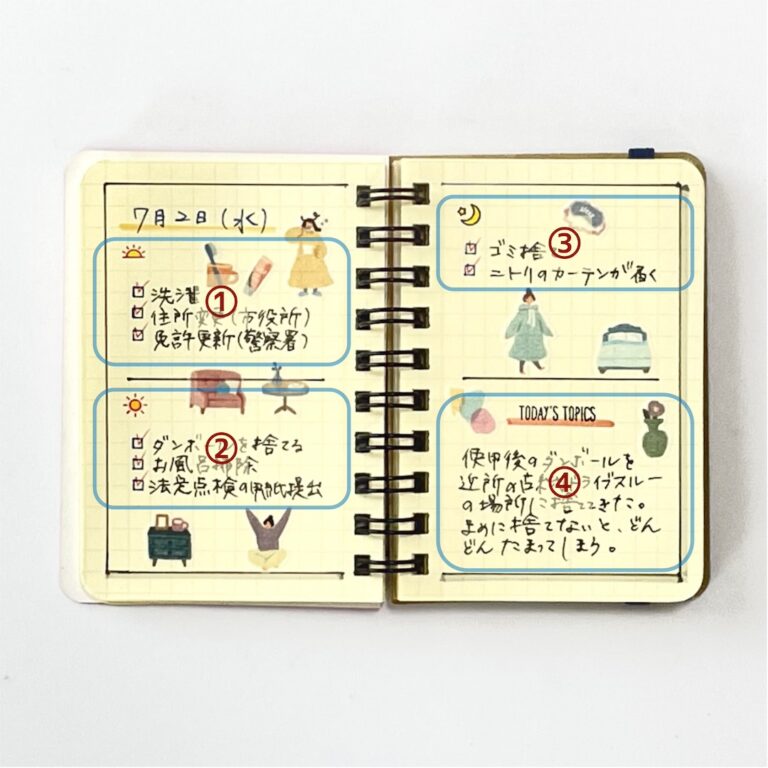 7月2日(水)
①
洗濯
住所変更(市役所)
免許更新(警察署)
②
ダンボールを捨てる
お風呂掃除
法定点検の用紙提出
③
ゴミ捨
ニトリのカーテンが届く
TODAY'S TOPICS
④
使用後のダンボールを
近所の ドライブスルー
の場所に捨ててきた。
まめに捨てないと、どん
どんたまってしまう。